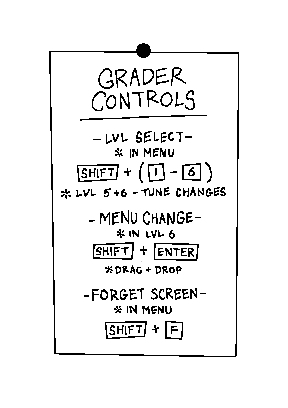 GRADER
CONTROLS
-LVL SELECT-
* IN MENU
SHIFT + (1 - 6)
* LVL 5+6 - TUNE CHANGES
-MENU CHANGE-
* IN LVL 6
SHIFT + ENTER
*DRAG + DROP
-FORGET SCREEN-
* IN MENU
SHIFT + F